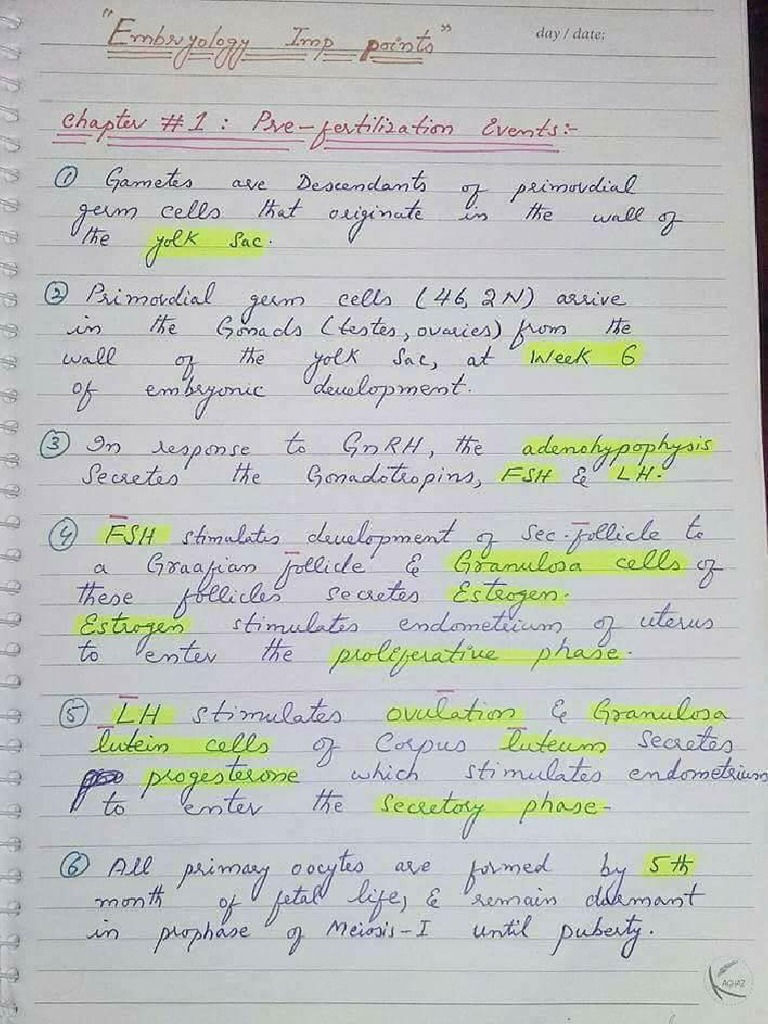 "Embryology Imp points"
day / date:
Chapter #1 : Pre-fertilization Events:-
① Gametes are Descendants of primordial
germ cells that originate in the wall of
the yolk Sac.
② Primordial germ cells (46, 2N) arrive
in the Gonads (testes, ovaries) from the
wall of the yolk Sac, at Week 6
of embryonic development.
③ In response to GnRH, the adenohypophysis
Secretes the Gonadotropins, FSH & LH.
④ FSH stimulates development of sec. follicle to
a Graafian follicle & Granulosa cells of
these follicles secretes Estrogen.
Estrogen stimulates endometrium of uterus
to enter the proliferative phase.
⑤ LH stimulates ovulation & Granulosa
lutein cells of Corpus luteum secretes
progesterone which stimulates endometrium
to enter the Secretory phase-
⑥ All primary oocytes are formed by 5th
month of fetal life, & remain darmant
in prophase of Meiosis-I until puberty.
AGHAZ